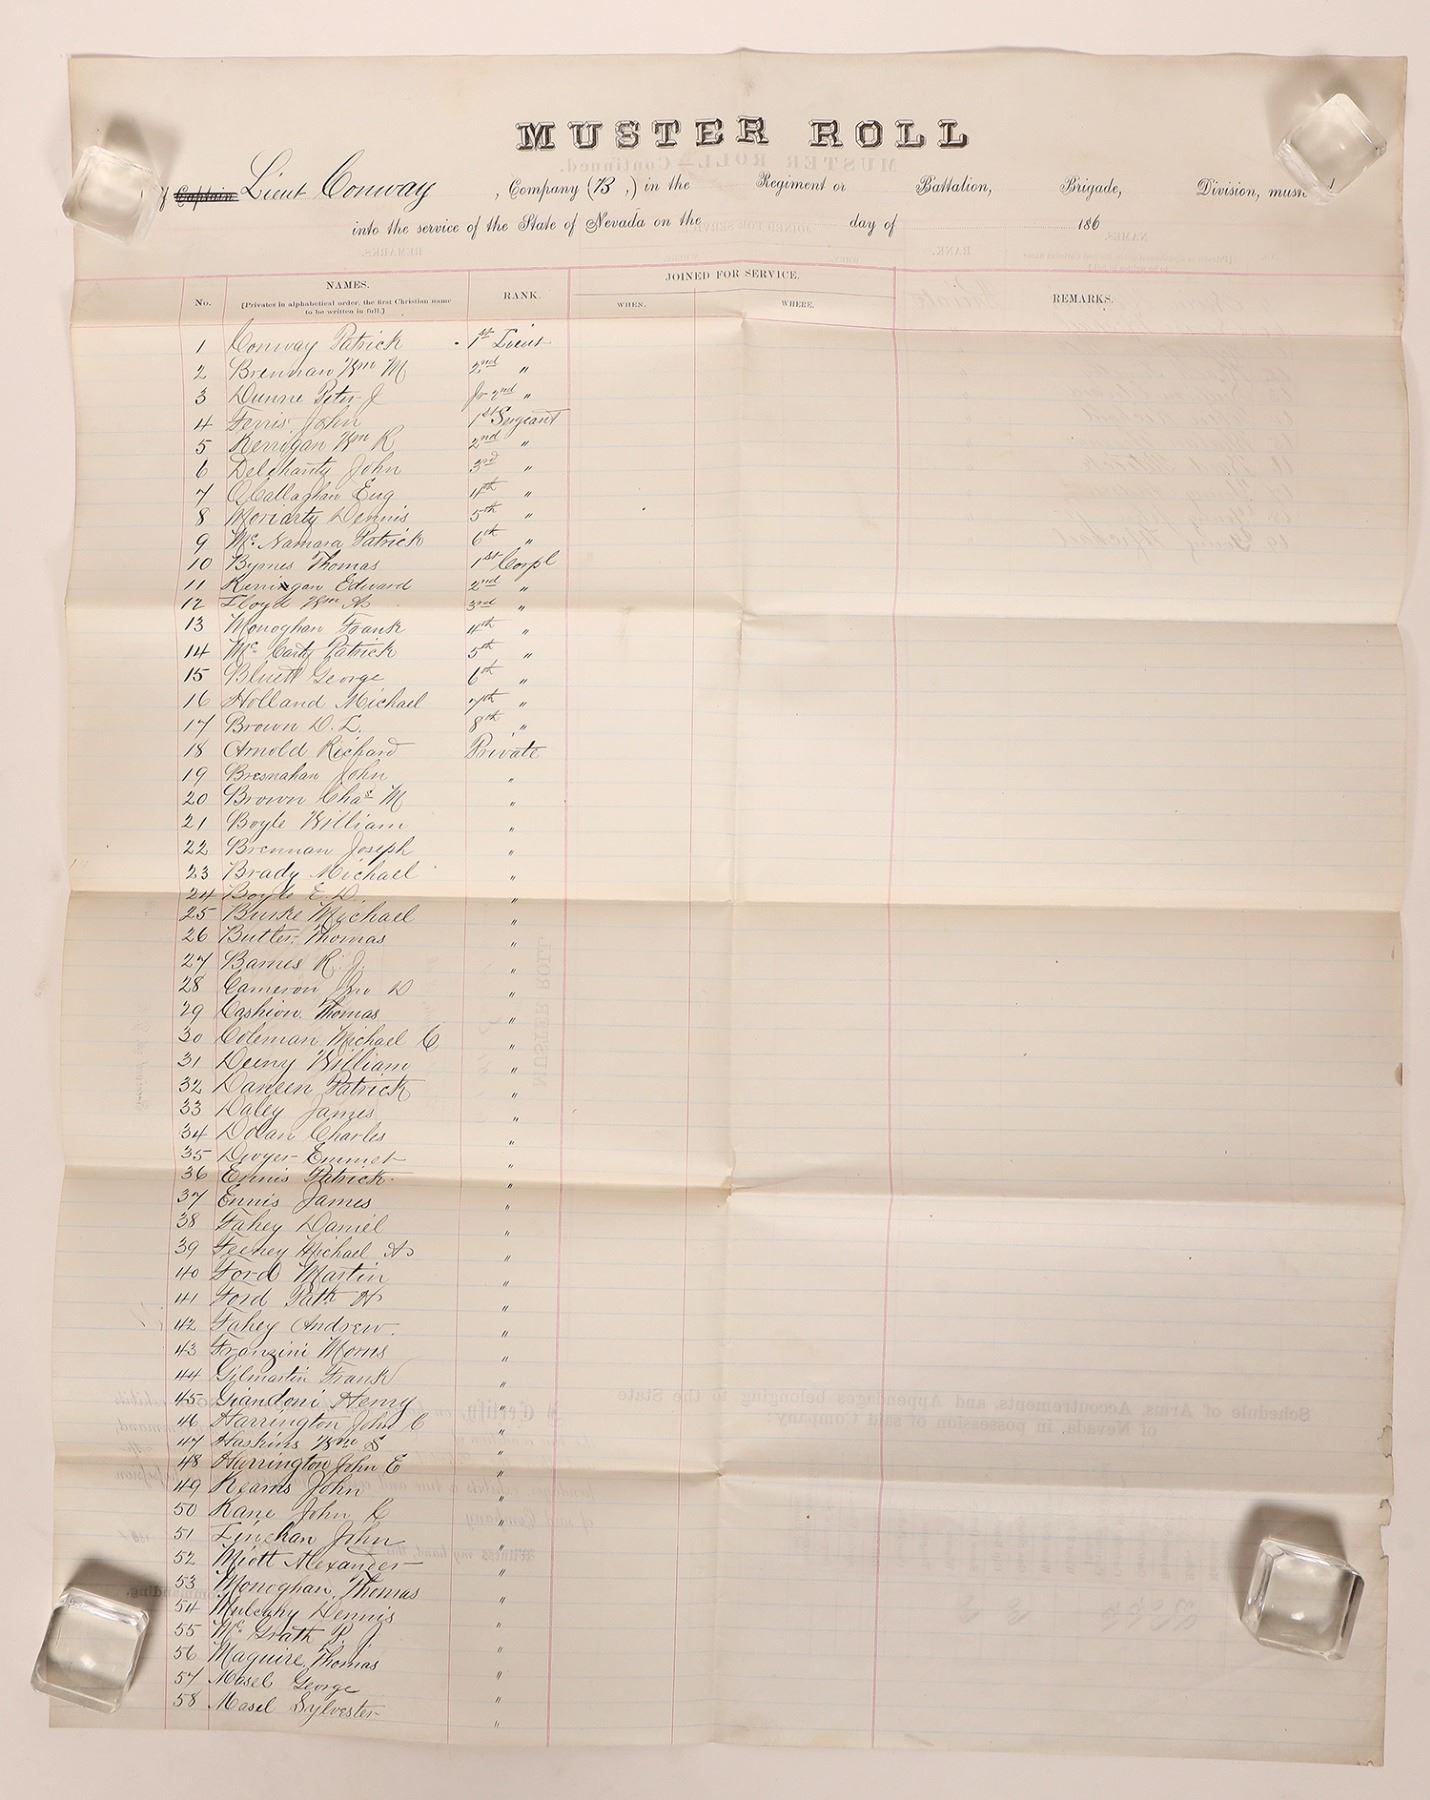 MUSTER ROLL
Captain Lieut Conway, Company (B,) in the Regiment or Battalion, Brigade, Division,
into the service of the State of Nevada on the day of 186
JOINED FOR SERVICE.
No. NAMES. RANK. WHEN. WHERE. REMARKS.
[Privates in alphabetical order, the first Christian name
to be written in full.]
1 Conway Patrick 1st Lieut
2 Brennan Wm M 2nd "
3 Dunne Peter J Jr 2nd "
4 Ferris John 1st Sergeant
5 Kerrigan Wm R 2nd "
6 Delehanty John 3rd "
7 O'Callaghan Eug 4th "
8 Moriarty Dennis 5th "
9 Mc Namara Patrick 6th "
10 Byrnes Thomas 1st Corpl
11 Kerrigan Edward 2nd "
12 Floyd Wm A 3rd "
13 Monoghan Frank 4th "
14 Mc Carty Patrick 5th "
15 Bluett George 6th "
16 Holland Michael 7th "
17 Brown D. L. 8th "
18 Arnold Richard Private
19 Bresnahan John "
20 Brown Chas M "
21 Boyle William "
22 Brennan Joseph "
23 Brady Michael "
24 Boyle E D. "
25 Burke Michael "
26 Butler Thomas "
27 Barnes R. J. "
28 Cameron Jno D "
29 Cashion Thomas "
30 Coleman Michael C "
31 Deeny William "
32 Daneen Patrick "
33 Daley James "
34 Dolan Charles "
35 Dwyer Emmet "
36 Ennis Patrick "
37 Ennis James "
38 Fahey Daniel "
39 Feeney Michael A "
40 Ford Martin "
41 Ford Patk H "
42 Fahey Andrew. "
43 Franzini Morris "
44 Gilmartin Frank "
45 Giandoni Henry "
46 Harrington John C "
47 Haskins Wm S "
48 Harrington John E "
49 Kearns John "
50 Kane John R "
51 Linehan John "
52 Miott Alexander "
53 Monoghan Thomas "
54 Mulcahy Dennis "
55 Mc Grath P. J. "
56 Maguire Thomas "
57 Masel George "
58 Masel Sylvester "